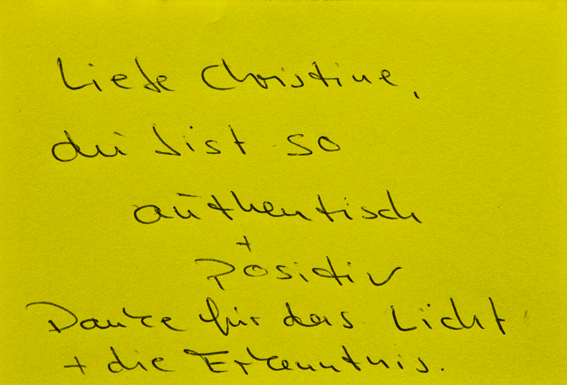 Liebe Christine,
du bist so
authentisch
+
positiv
Danke für das Licht
+ die Erkenntnis.